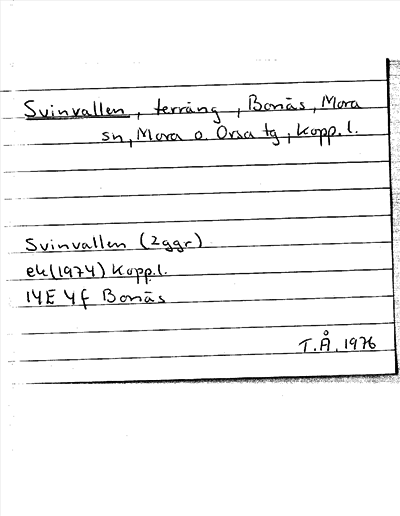 Svinvallen, terräng, Bonäs, Mora
sn, Mora o. Orsa tg, Kopp. l.
Svinvallen (2ggr)
ek (1974) Kopp.l.
14E 4f Bonäs
T.Å. 1976